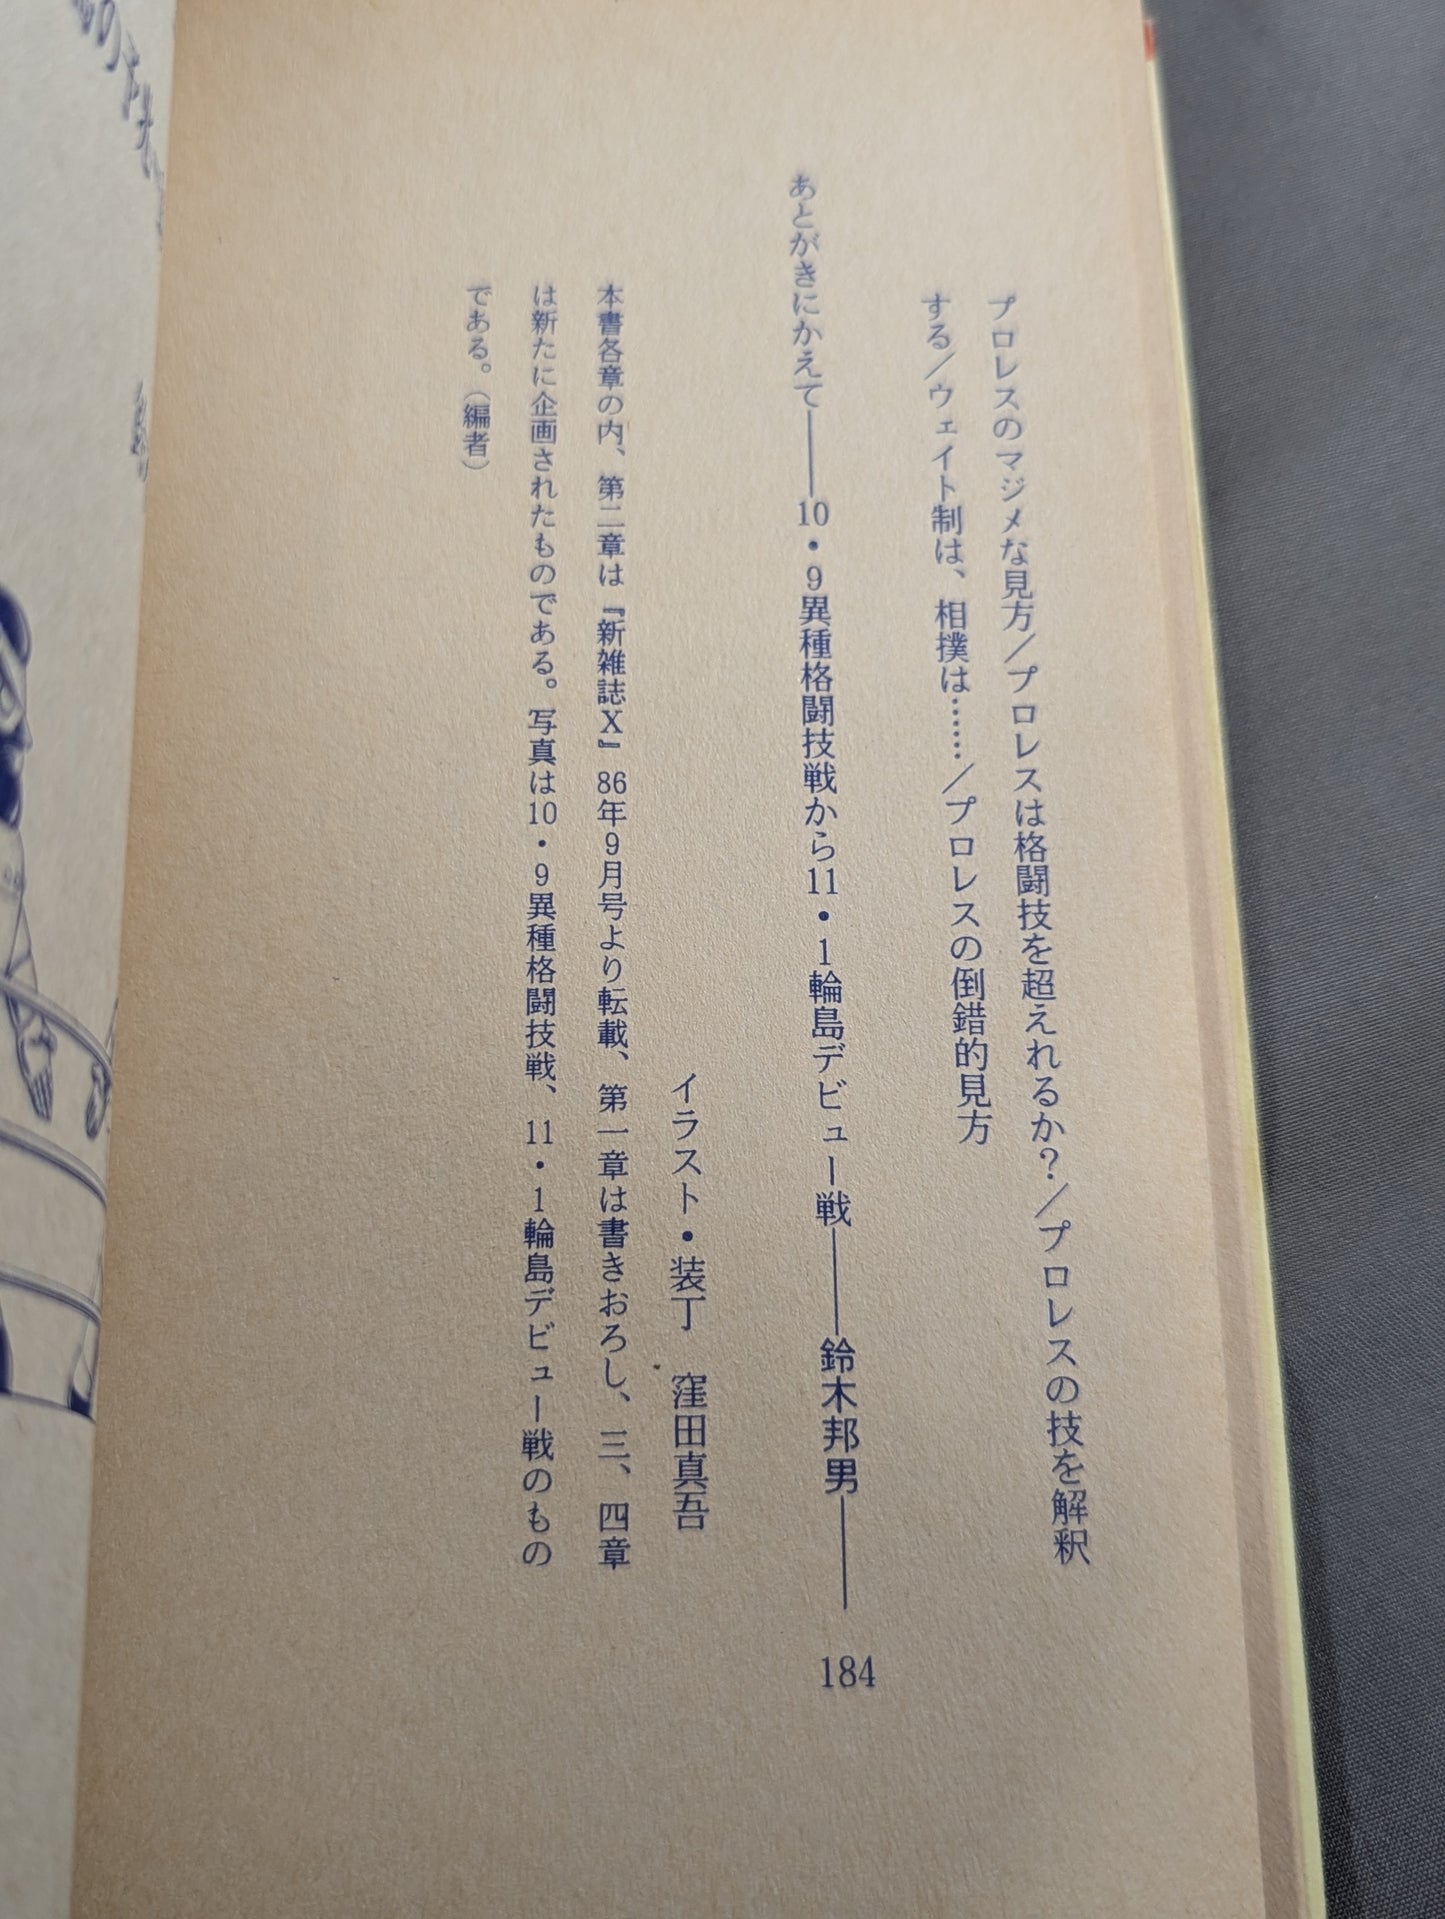 プロレスのマジメな見方／プロレスは格闘技を超えれるか？／プロレスの技を解釈
する／ウェイト制は、相撲は……／プロレスの倒錯的見方
あとがきにかえて――10・9異種格闘技戦から11・1輪島デビュー戦――鈴木邦男――184
イラスト・装丁　窪田真吾
本書各章の内、第二章は『新雑誌X』86年9月号より転載、第一章は書きおろし、三、四章
は新たに企画されたものである。写真は10・9異種格闘技戦、11・1輪島デビュー戦のもの
である。（編者）